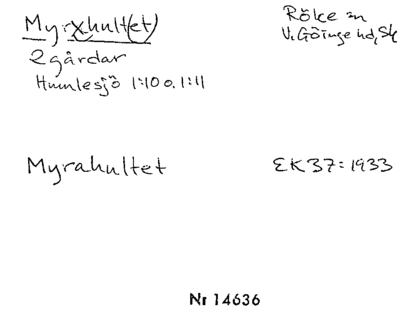 Myrxhult(et) Röke sn
V. Göinge hd, Sk
2 gårdar
Humlesjö 1:10 o. 1:11
Myrahultet EK37: 1933
Nr 14636